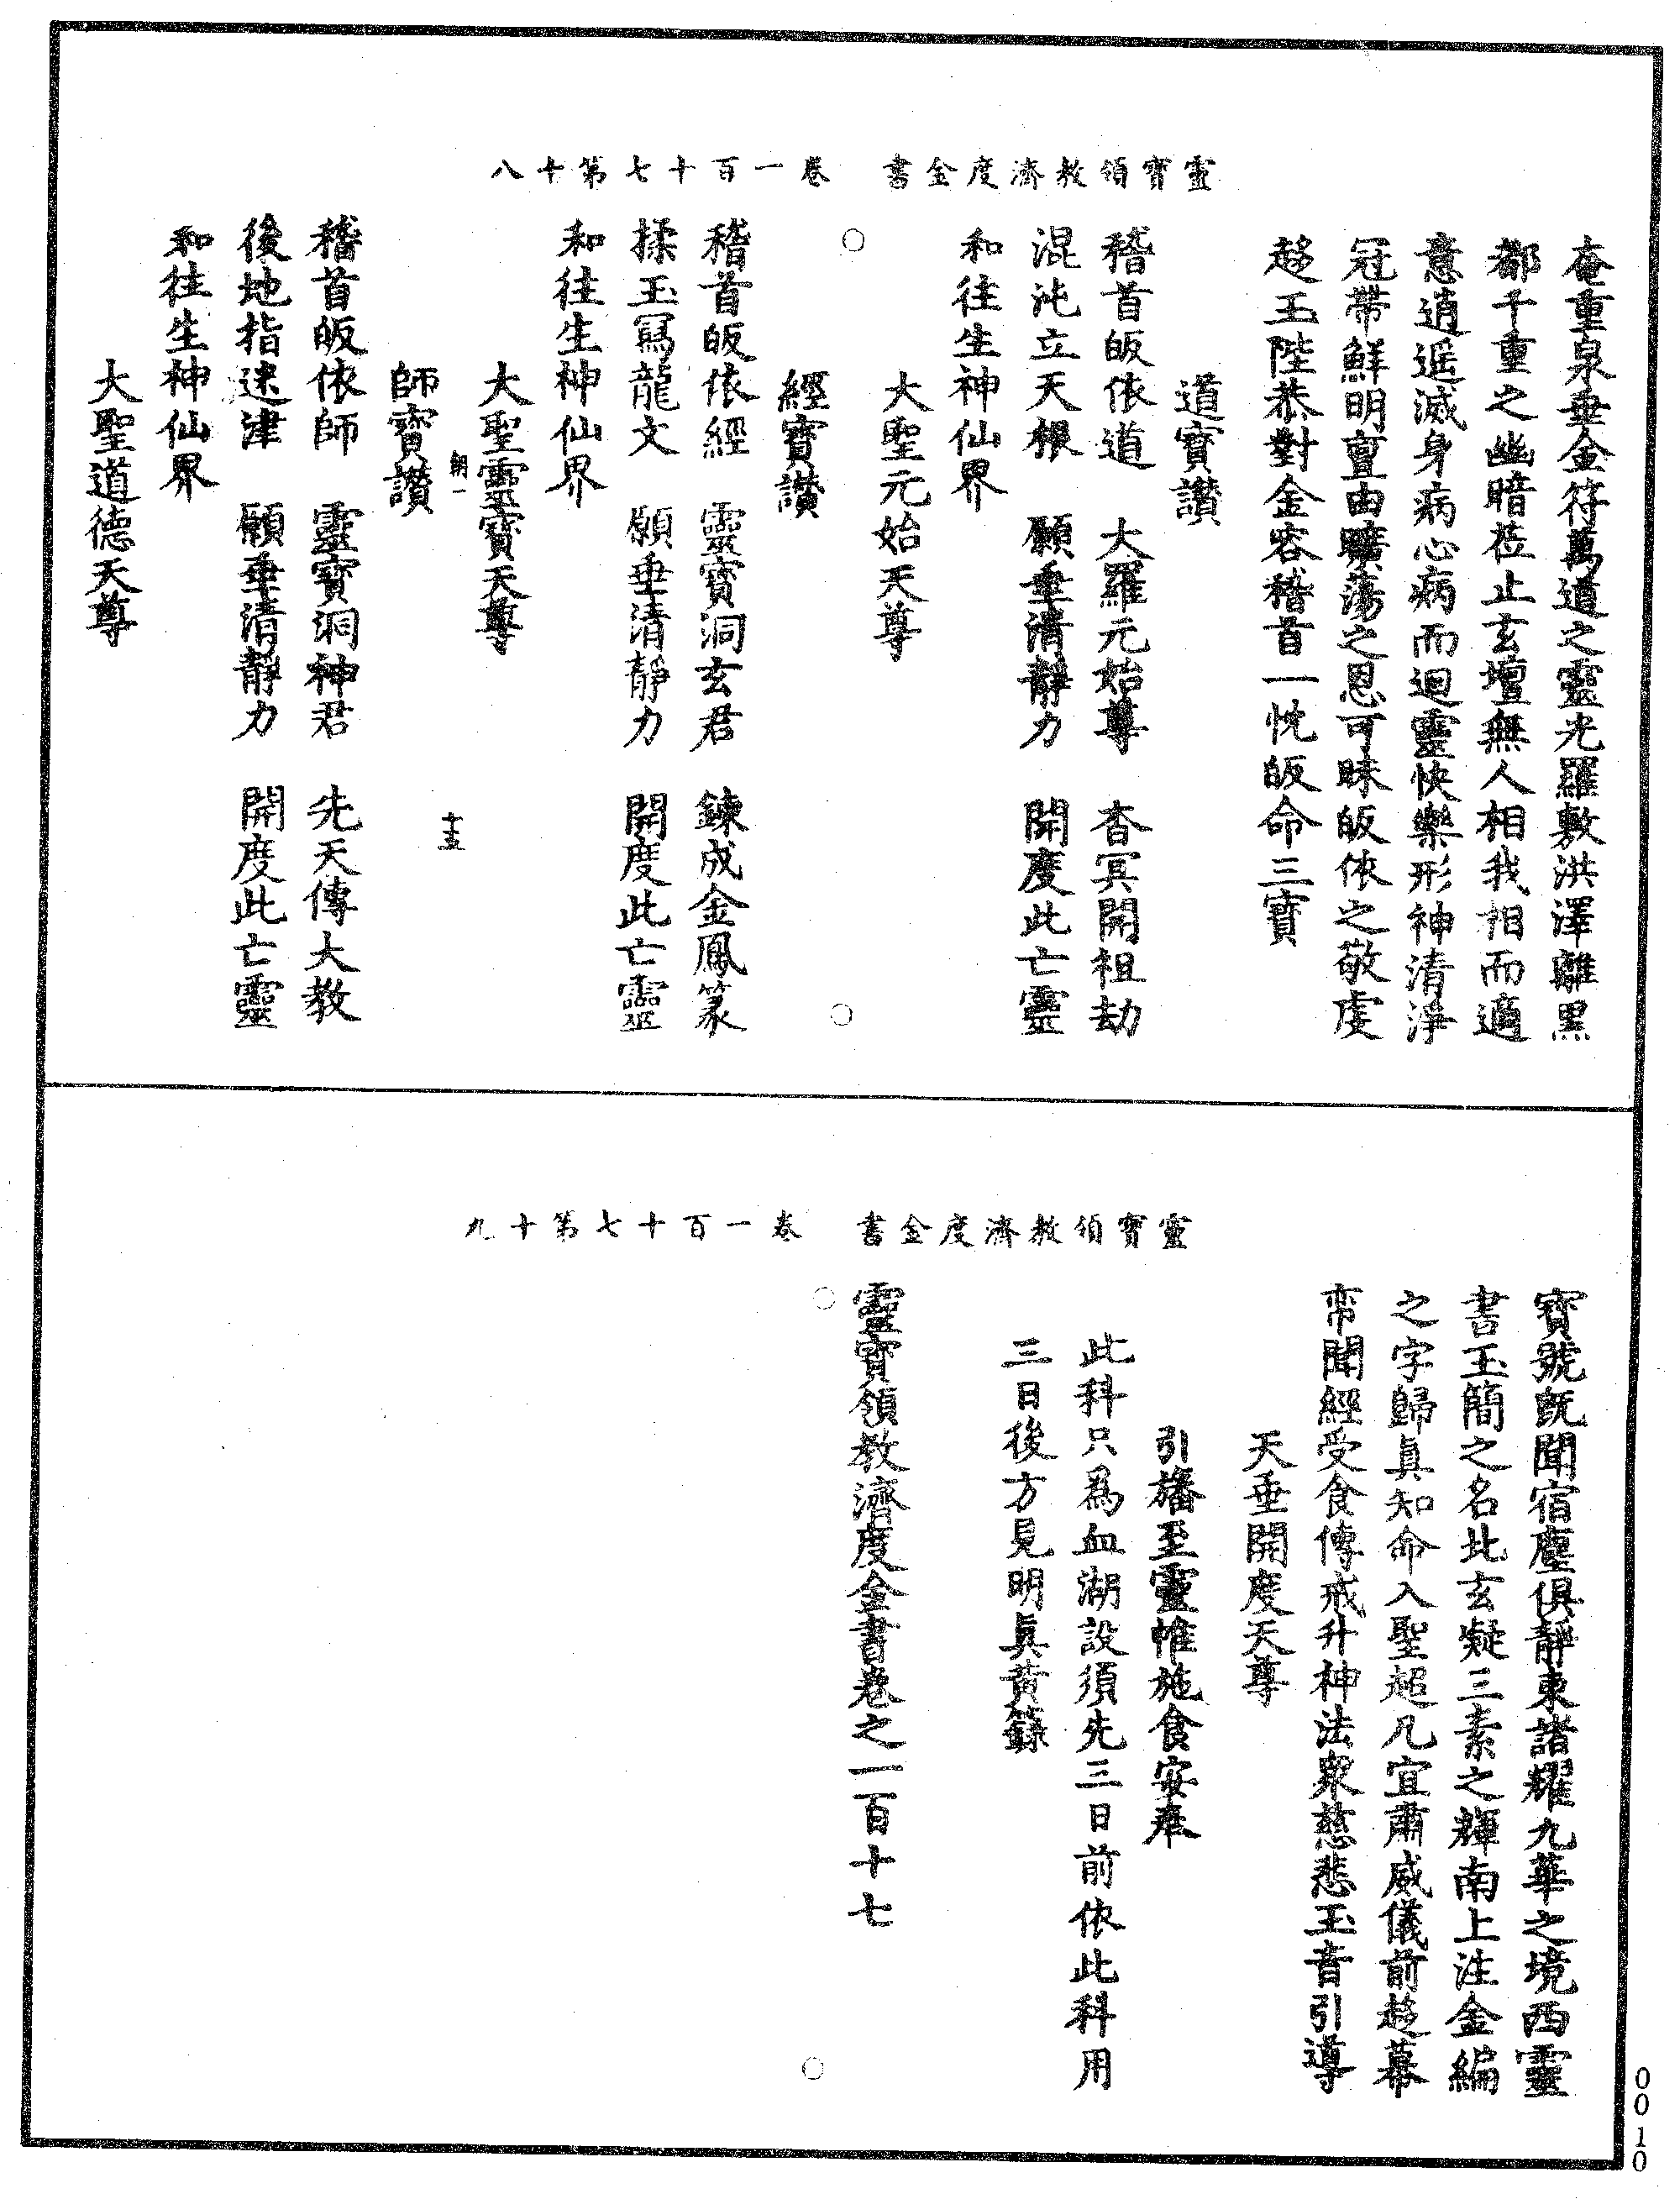 靈寶領教濟度金書　卷一百十七第十八
奄重泉垂金符萬道之靈光羅敷洪澤離黑
都千重之幽暗莅止玄壇無人相我相而適
意逍遥滅身病心病而迴靈快樂形神清淨
冠帶鮮明亶由曠蕩之恩可昧皈依之敬虔
趍玉陛恭對金容稽首一忱皈命三寶
道寶讚
稽首皈依道　大羅元始尊　杳冥開祖劫
混沌立天根　願垂清靜力　開度此亡靈
和往生神仙界
大聖元始天尊
經寶讚
稽首皈依經　靈寶洞玄君　鍊成金鳳篆
揉玉寫龍文　願垂清靜力　開度此亡靈
和往生神仙界
大聖靈寶天尊
朝一　十五
師寶讚
稽首皈依師　靈寶洞神君　先天傳大教
後地指迷津　願垂清靜力　開度此亡靈
和往生神仙界
大聖道德天尊
靈寶領教濟度金書　卷一百十七第十九
寶號旣聞宿塵俱靜東諸耀九華之境西靈
書玉簡之名北玄凝三素之輝南上注金編
之字歸眞知命入聖超凡宜肅威儀前趍幕
帟聞經受食傳戒升神法衆慈悲玉音引導
天垂開度天尊
引旛至靈帷施食安奉
此科只爲血湖設須先三日前依此科用
三日後方見明眞黃籙
靈寶領教濟度金書卷之一百十七
0010